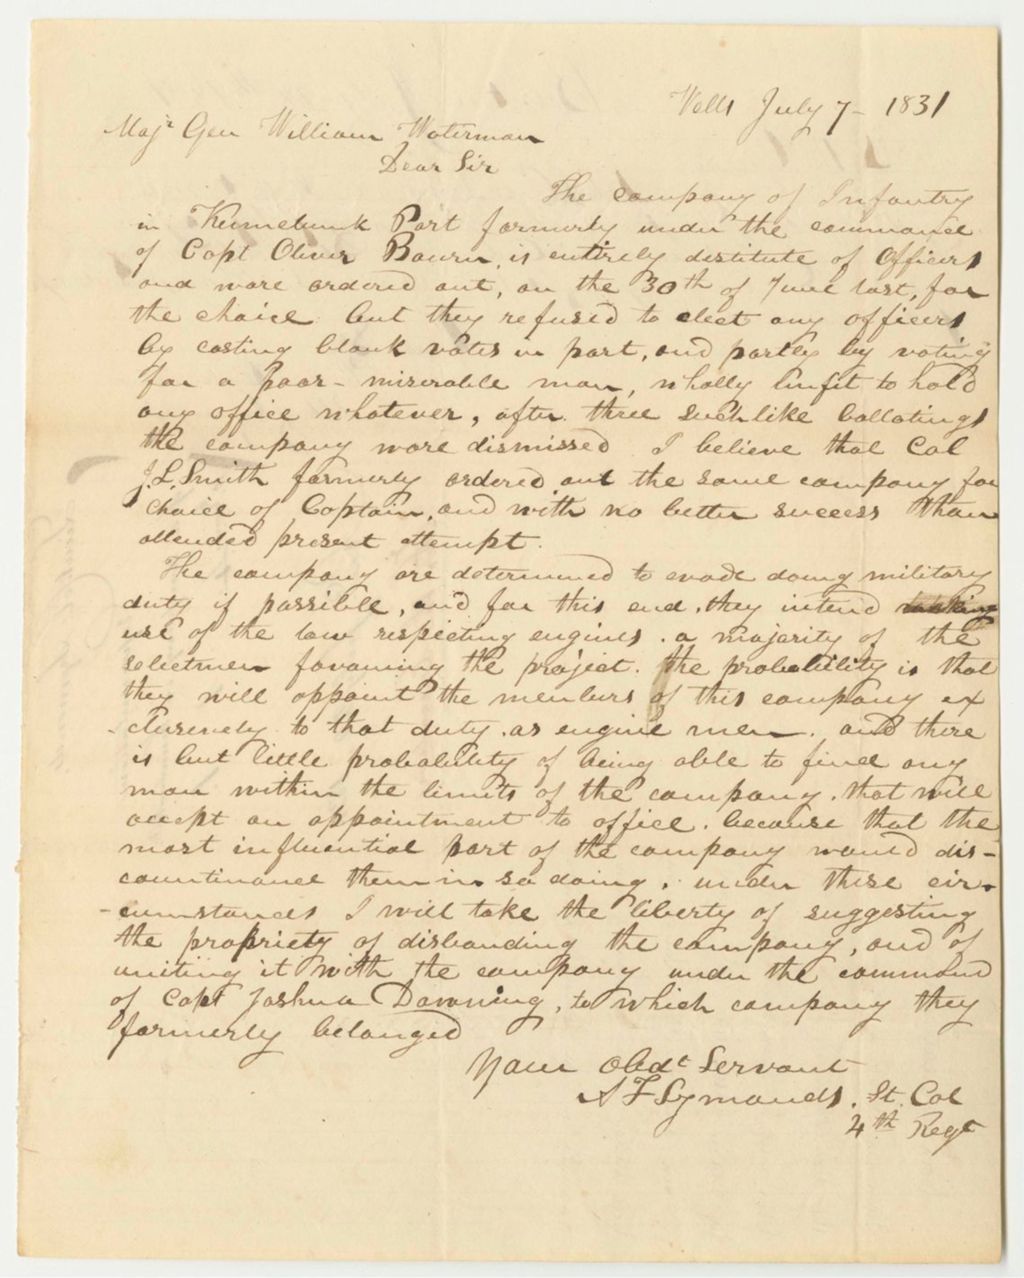 Wells July 7 - 1831
Majr Gen William Waterman
Dear Sir
The company of Infantry
in Kennebunk Port formerly under the command
of Capt Oliver Bourn, is entirely destitute of Officers
and ware ordered out, on the 30th of June last, for
the choice but they refused to elect any officers
by casting blank votes in part, and partly by voting
for a poor - miserable man, wholly unfit to hold
any office whatever, after three suchlike ballotings
the company ware dismissed I believe that Col
J. L. Smith formerly ordered out the same company for
choice of Captain, and with no better success than
attended present attempt.
The company are determined to evade doing military
duty if possible, and for this end, they intend making
use of the law respecting engines. a majority of the
selectmen favouring the project. the probability is that
they will appoint the members of this company ex
-clusively to that duty. as engine men. and there
is but little probability of being able to find any
man within the limits of the company. that will
accept an appointment to office. because that the
most influential part of the company would dis-
countinance them in so doing, under these cir-
-cumstances I will take the liberty of suggesting
the propriety of disbanding the company, and of
uniting it with the company under the command
of Capt Joshua Downing, to which company they
formerly belonged
Your Obdt Servant
A F Symonds. Lt. Col
4th Regt